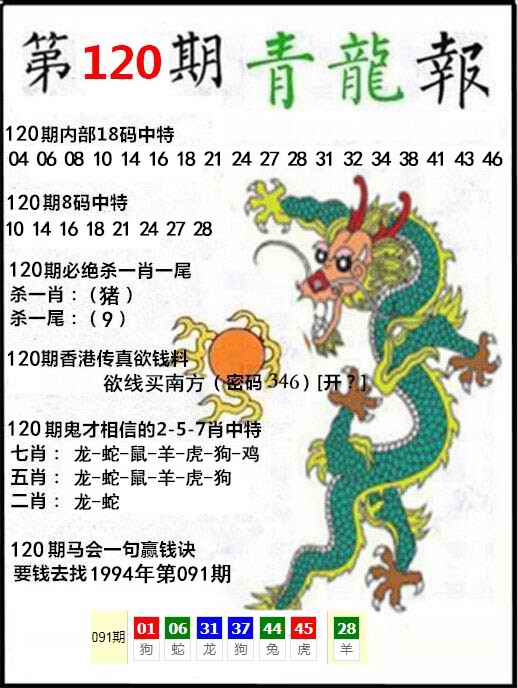 第120期青龍報
120期内部18码中特
04 06 08 10 14 16 18 21 24 27 28 31 32 34 38 41 43 46
120期8码中特
10 14 16 18 21 24 27 28
120期必绝杀一肖一尾
杀一肖：（猪）
杀一尾：（9）
120期香港传真欲钱料
欲线买南方（密码346）[开？]
120期鬼才相信的2-5-7肖中特
七肖： 龙-蛇-鼠-羊-虎-狗-鸡
五肖： 龙-蛇-鼠-羊-虎-狗
二肖： 龙-蛇
120期马会一句赢钱诀
要钱去找1994年第091期
091期 01 06 31 37 44 45 28
狗 蛇 龙 狗 兔 虎 羊